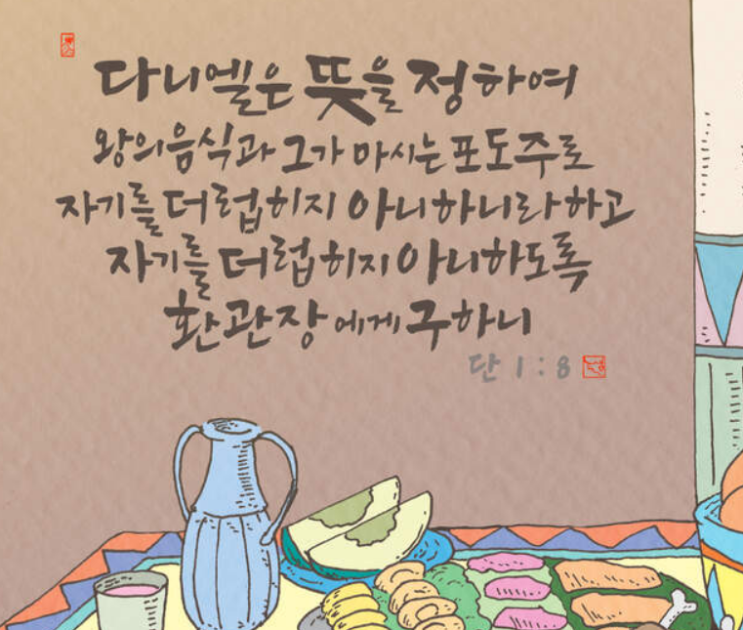 다니엘은 뜻을 정하여
왕의 음식과 그가 마시는 포도주로
자기를 더럽히지 아니하니라 하고
자기를 더럽히지 아니하도록
환관장에게 구하니
단 1:8